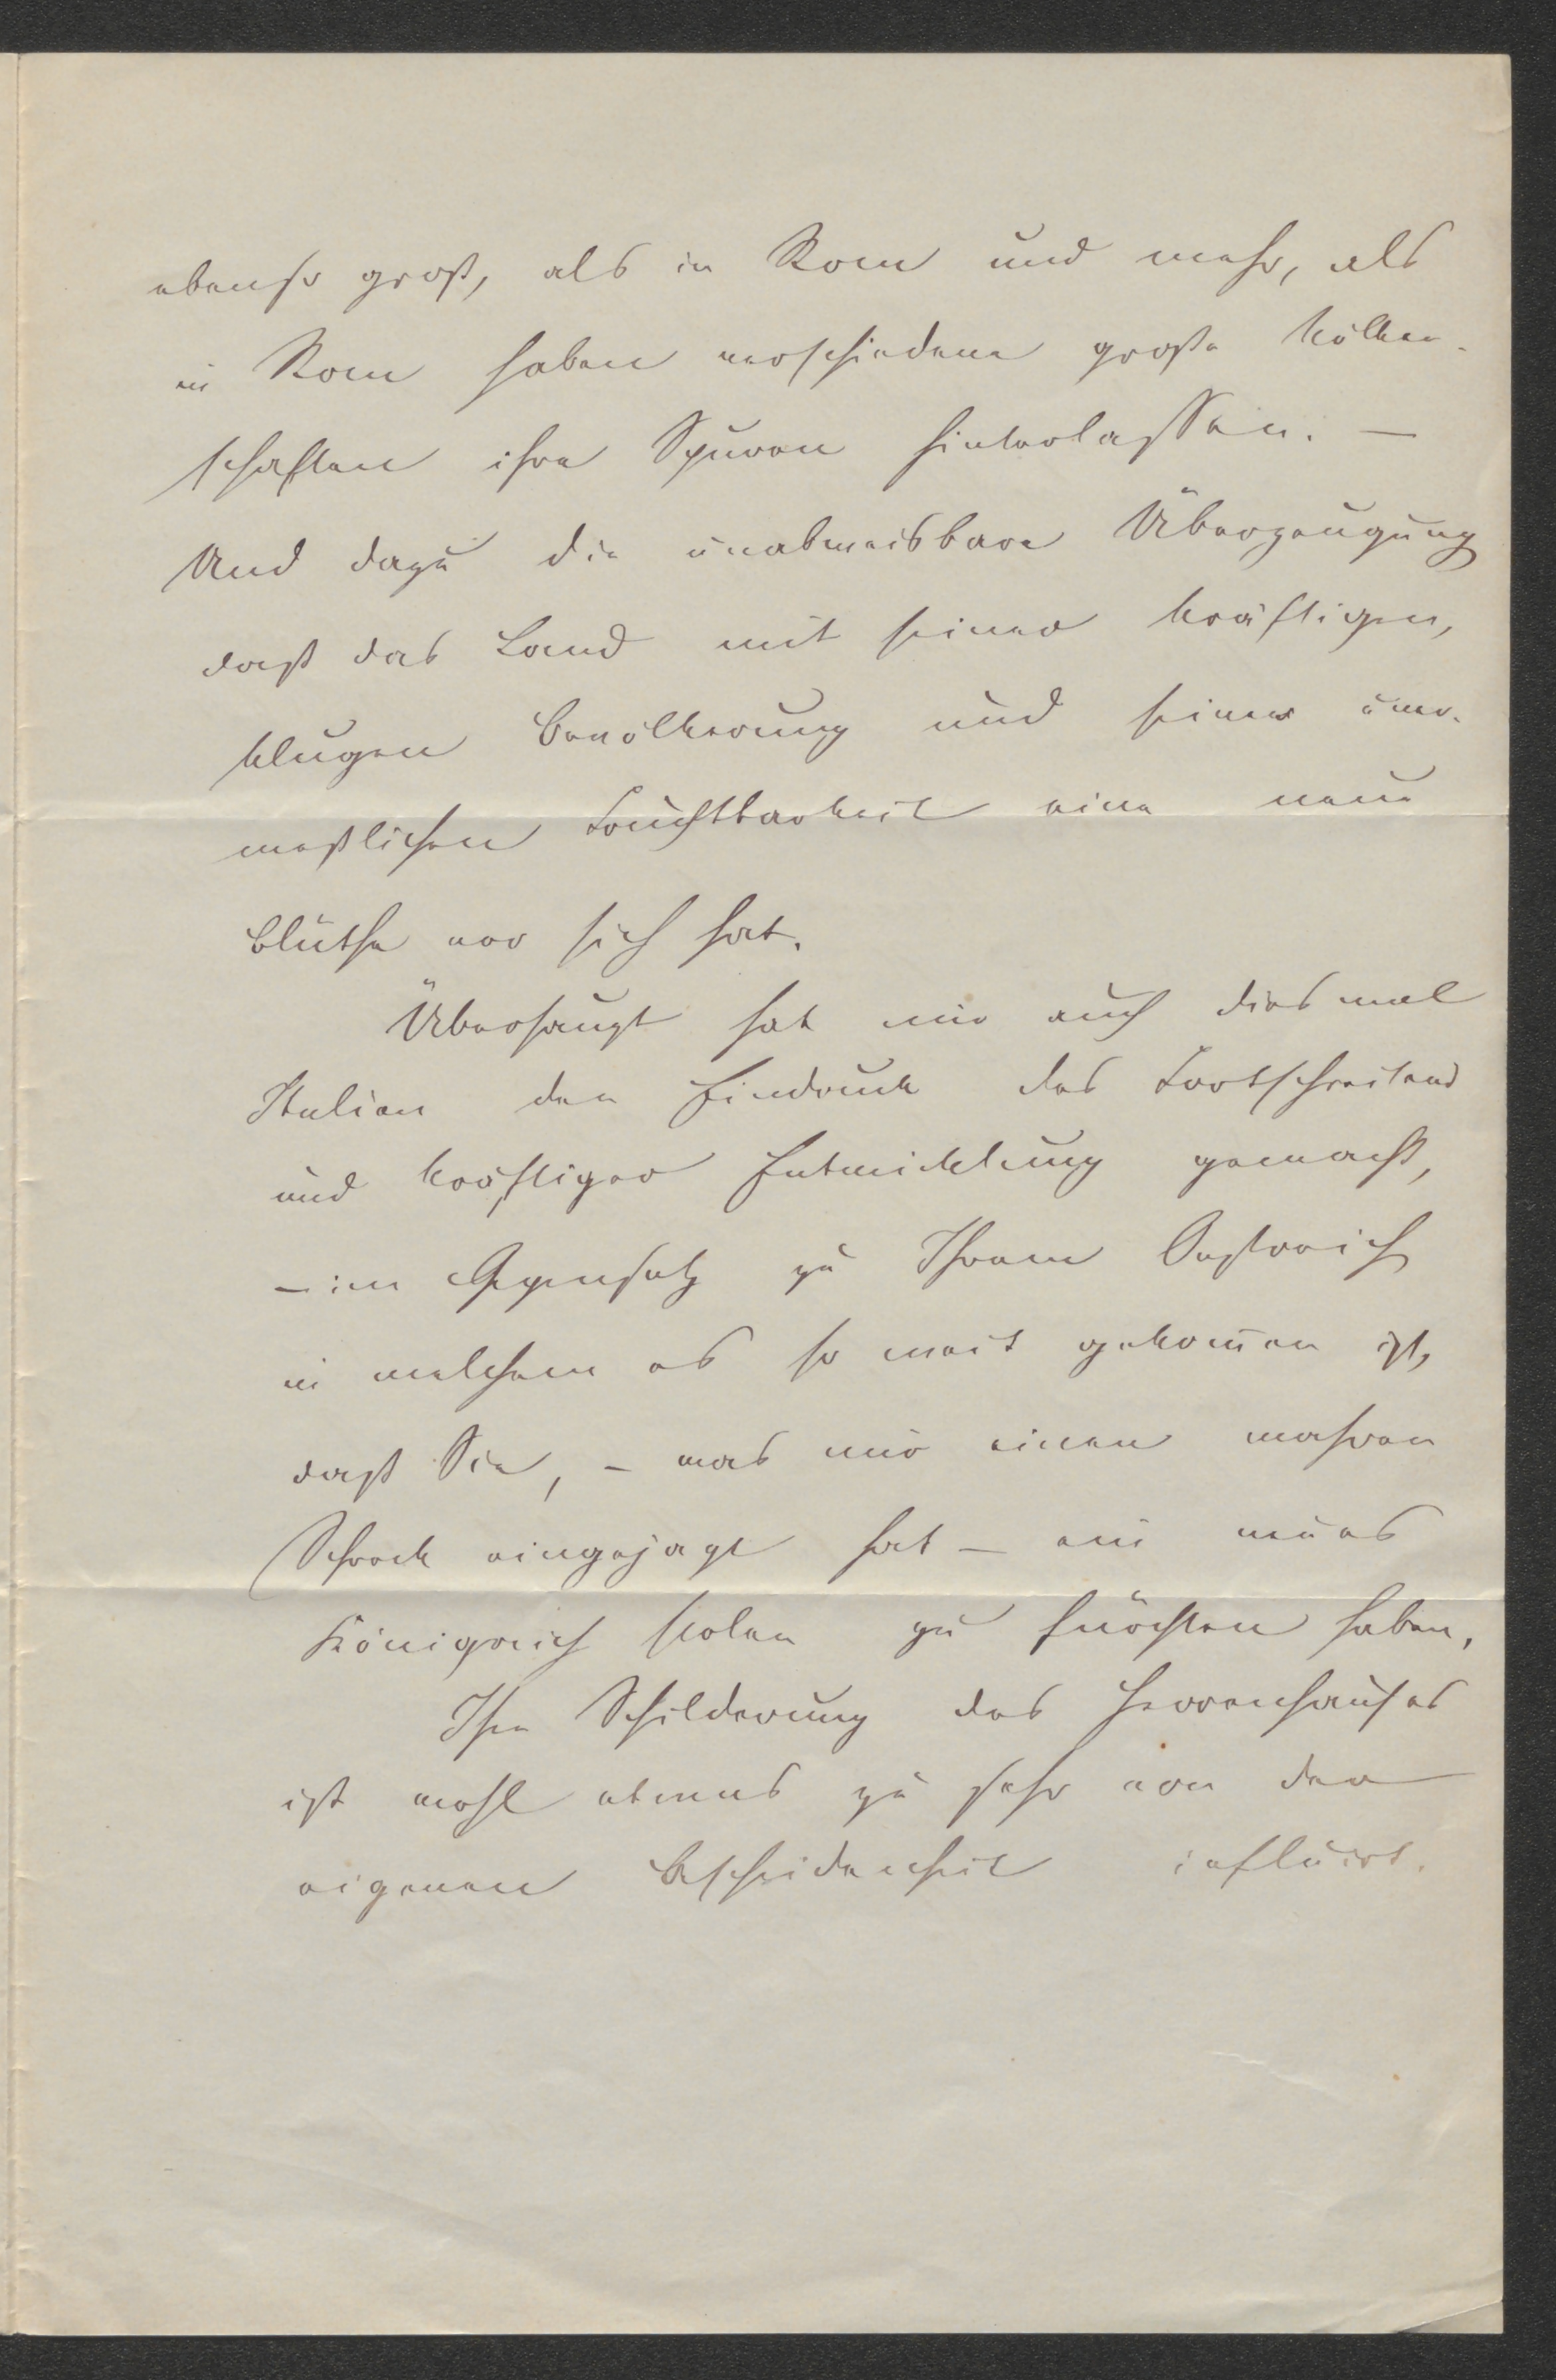 ebenso groß, als in Rom und mehr, als
in Rom haben verschiedene große Völker-
schaften ihre Spuren hinterlassen. –
Und dazu die unabweisbare Überzeugung
daß das Land mit seiner kräftigen,
klugen Bevölkerung und seiner uner-
meßlichen Fruchtbarkeit eine neue
Blüthe vor sich hat.
Überhaupt hat mir auch dies mal
Italien den Eindruck des Fortschreitens
und kräftiger Entwicklung gemacht,
– im Gegensatz zu Ihrem Oestreich
in welchem es so weit gekommen ist,
daß Sie, – was mir einen wahren
Schreck eingejagt hat – ein neues
Königreich Polen zu fürchten haben,
Ihre Schilderung des Herrenhauses
ist wohl etwas zu sehr von der
eigenen Bescheidenheit influirt.